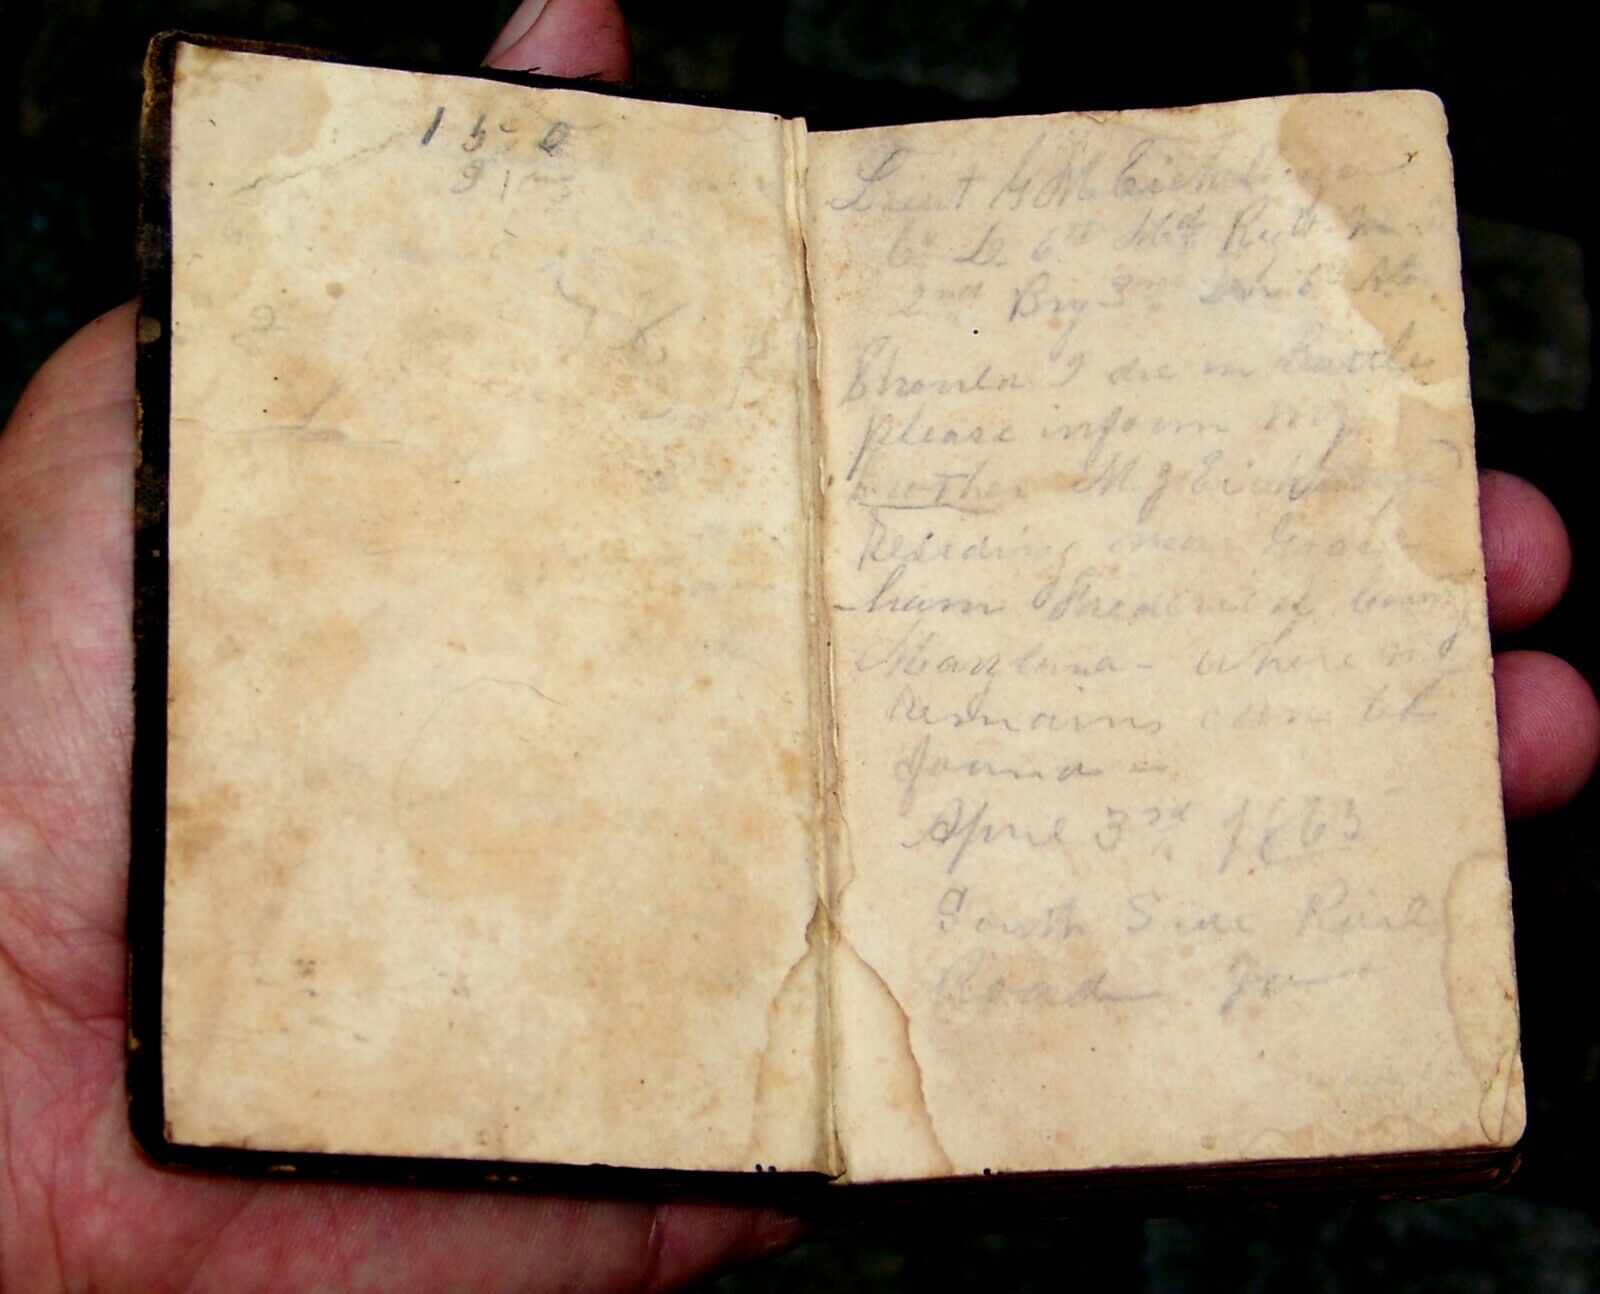 150
Lieut G M Eichelberger
Co D 6th Md Regt
2nd Brig 3rd Div 6th
Should I die in battle
please inform my
brother M J Eichelberger
Resideing near Grace-
-ham Frederick County
Maryland - where my
remains can be
found -
April 3rd 1865
South Side Rail
Road